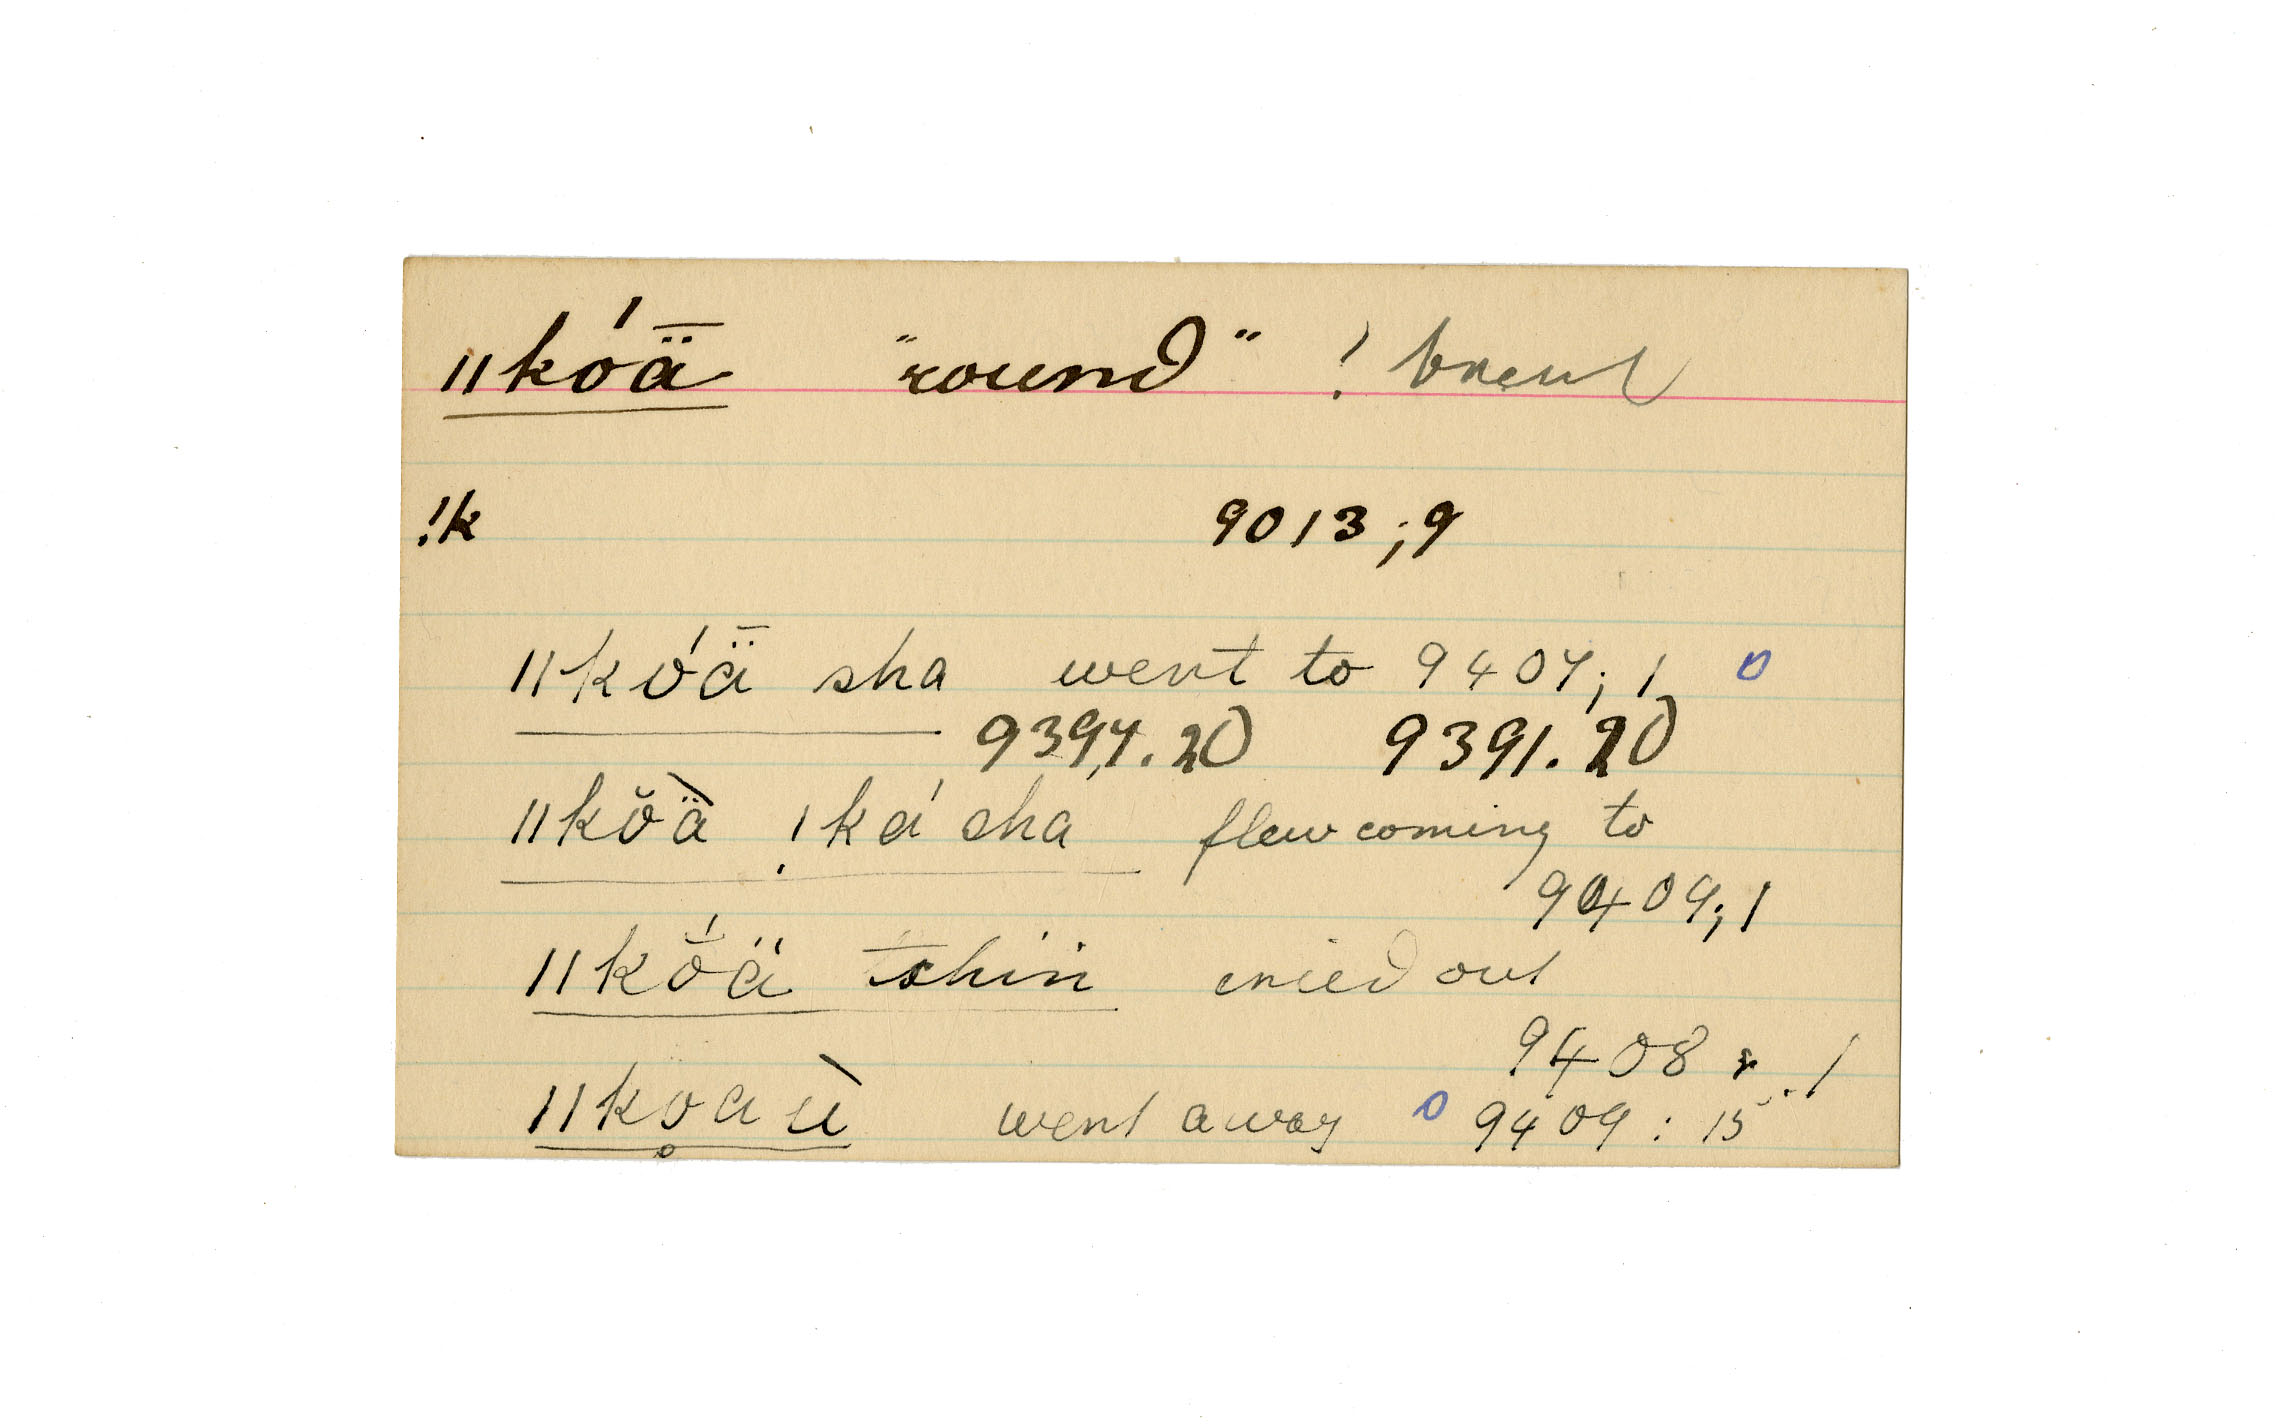 ǁkóǟ "round" !
!k 9013;9
ǁkóǟ sha went to 9407;1 0
9397.20 9391.20
ǁkŏä̀ !ká sha flew coming to
9409;1
ǁkŏ́ä tchin cried out
9408 .1
ǁkọaù went away 0 9409:15